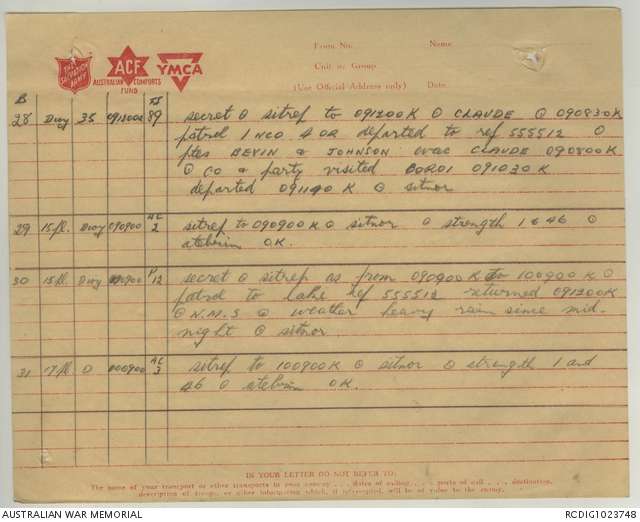 THE SALVATION ARMY
ACF
AUSTRALIAN COMFORTS FUND
YMCA
From No. Name
Unit or Group
(Use Official Address only) Date
B
28 Dwy 35 091200K 89 secret O sitref to 091200K O CLAUDE O 090830K
patrol 1 NCO 4 OR departed to ref 555512 O
ptes BEVIN & JOHNSON evac CLAUDE 090800K
O CO & party visited BOROI 091030K
departed 091140K O sitnor
29 15 pl. Dwy 090900 AC 2 sitref to 090900K O sitnor O strength 1 & 46 O
atebrin OK.
30 15 pl Dwy 090900 P 12 secret O sitrep as from 090900K to 100900K O
patrol to lake ref 555512 returned 091200K
O N.M.S O weather heavy rain since mid.
night O sitnor
31 17 pl. D 100900 AC 3 sitref to 100900K O sitnor O strength 1 and
46 O atebrin OK.
IN YOUR LETTER DO NOT REFER TO:
The name of your transport or other transports in your convoy . . . dates of sailing . . . ports of call . . . destination,
description of troops, or other information which, if intercepted, will be of value to the enemy.
AUSTRALIAN WAR MEMORIAL
RCDIG1023748